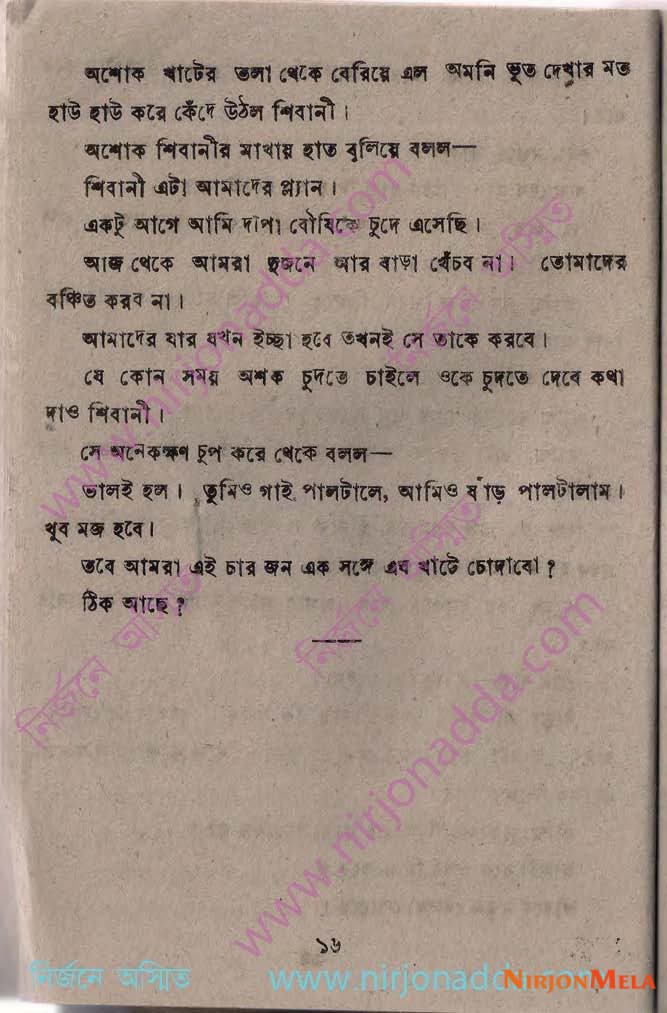 অশোক খাটের তলা থেকে বেরিয়ে এল অমনি ভূত দেখার মত
হাউ হাউ করে কেঁদে উঠল শিবানী।
অশোক শিবানীর মাথায় হাত বুলিয়ে বলল—
শিবানী এটা আমাদের প্ল্যান।
একটু আগে আমি দীপা বৌদিকে চুদে এসেছি।
আজ থেকে আমরা দুজনে আর বাড়া খেঁচব না। তোমাদের
বঞ্চিত করব না।
আমাদের যার যখন ইচ্ছা হবে তখনই সে তাকে করবে।
যে কোন সময় অশক চুদতে চাইলে ওকে চুদতে দেবে কথা
দাও শিবানী।
সে অনেকক্ষণ চুপ করে থেকে বলল—
ভালই হল। তুমিও গাই পালটালে, আমিও ষাঁড় পালটালাম।
খুব মজ হবে।
তবে আমরা এই চার জন এক সঙ্গে এষ খাটে চোদাবো?
ঠিক আছে?
১৬
নির্জনে অস্মিত www.nirjonadda.com
NIRJONMELA
www.nirjonadda.com
নির্জনে অস্মিত
নির্জনে অস্মিত
নির্জনে অস্মিত
www.nirjonadda.com